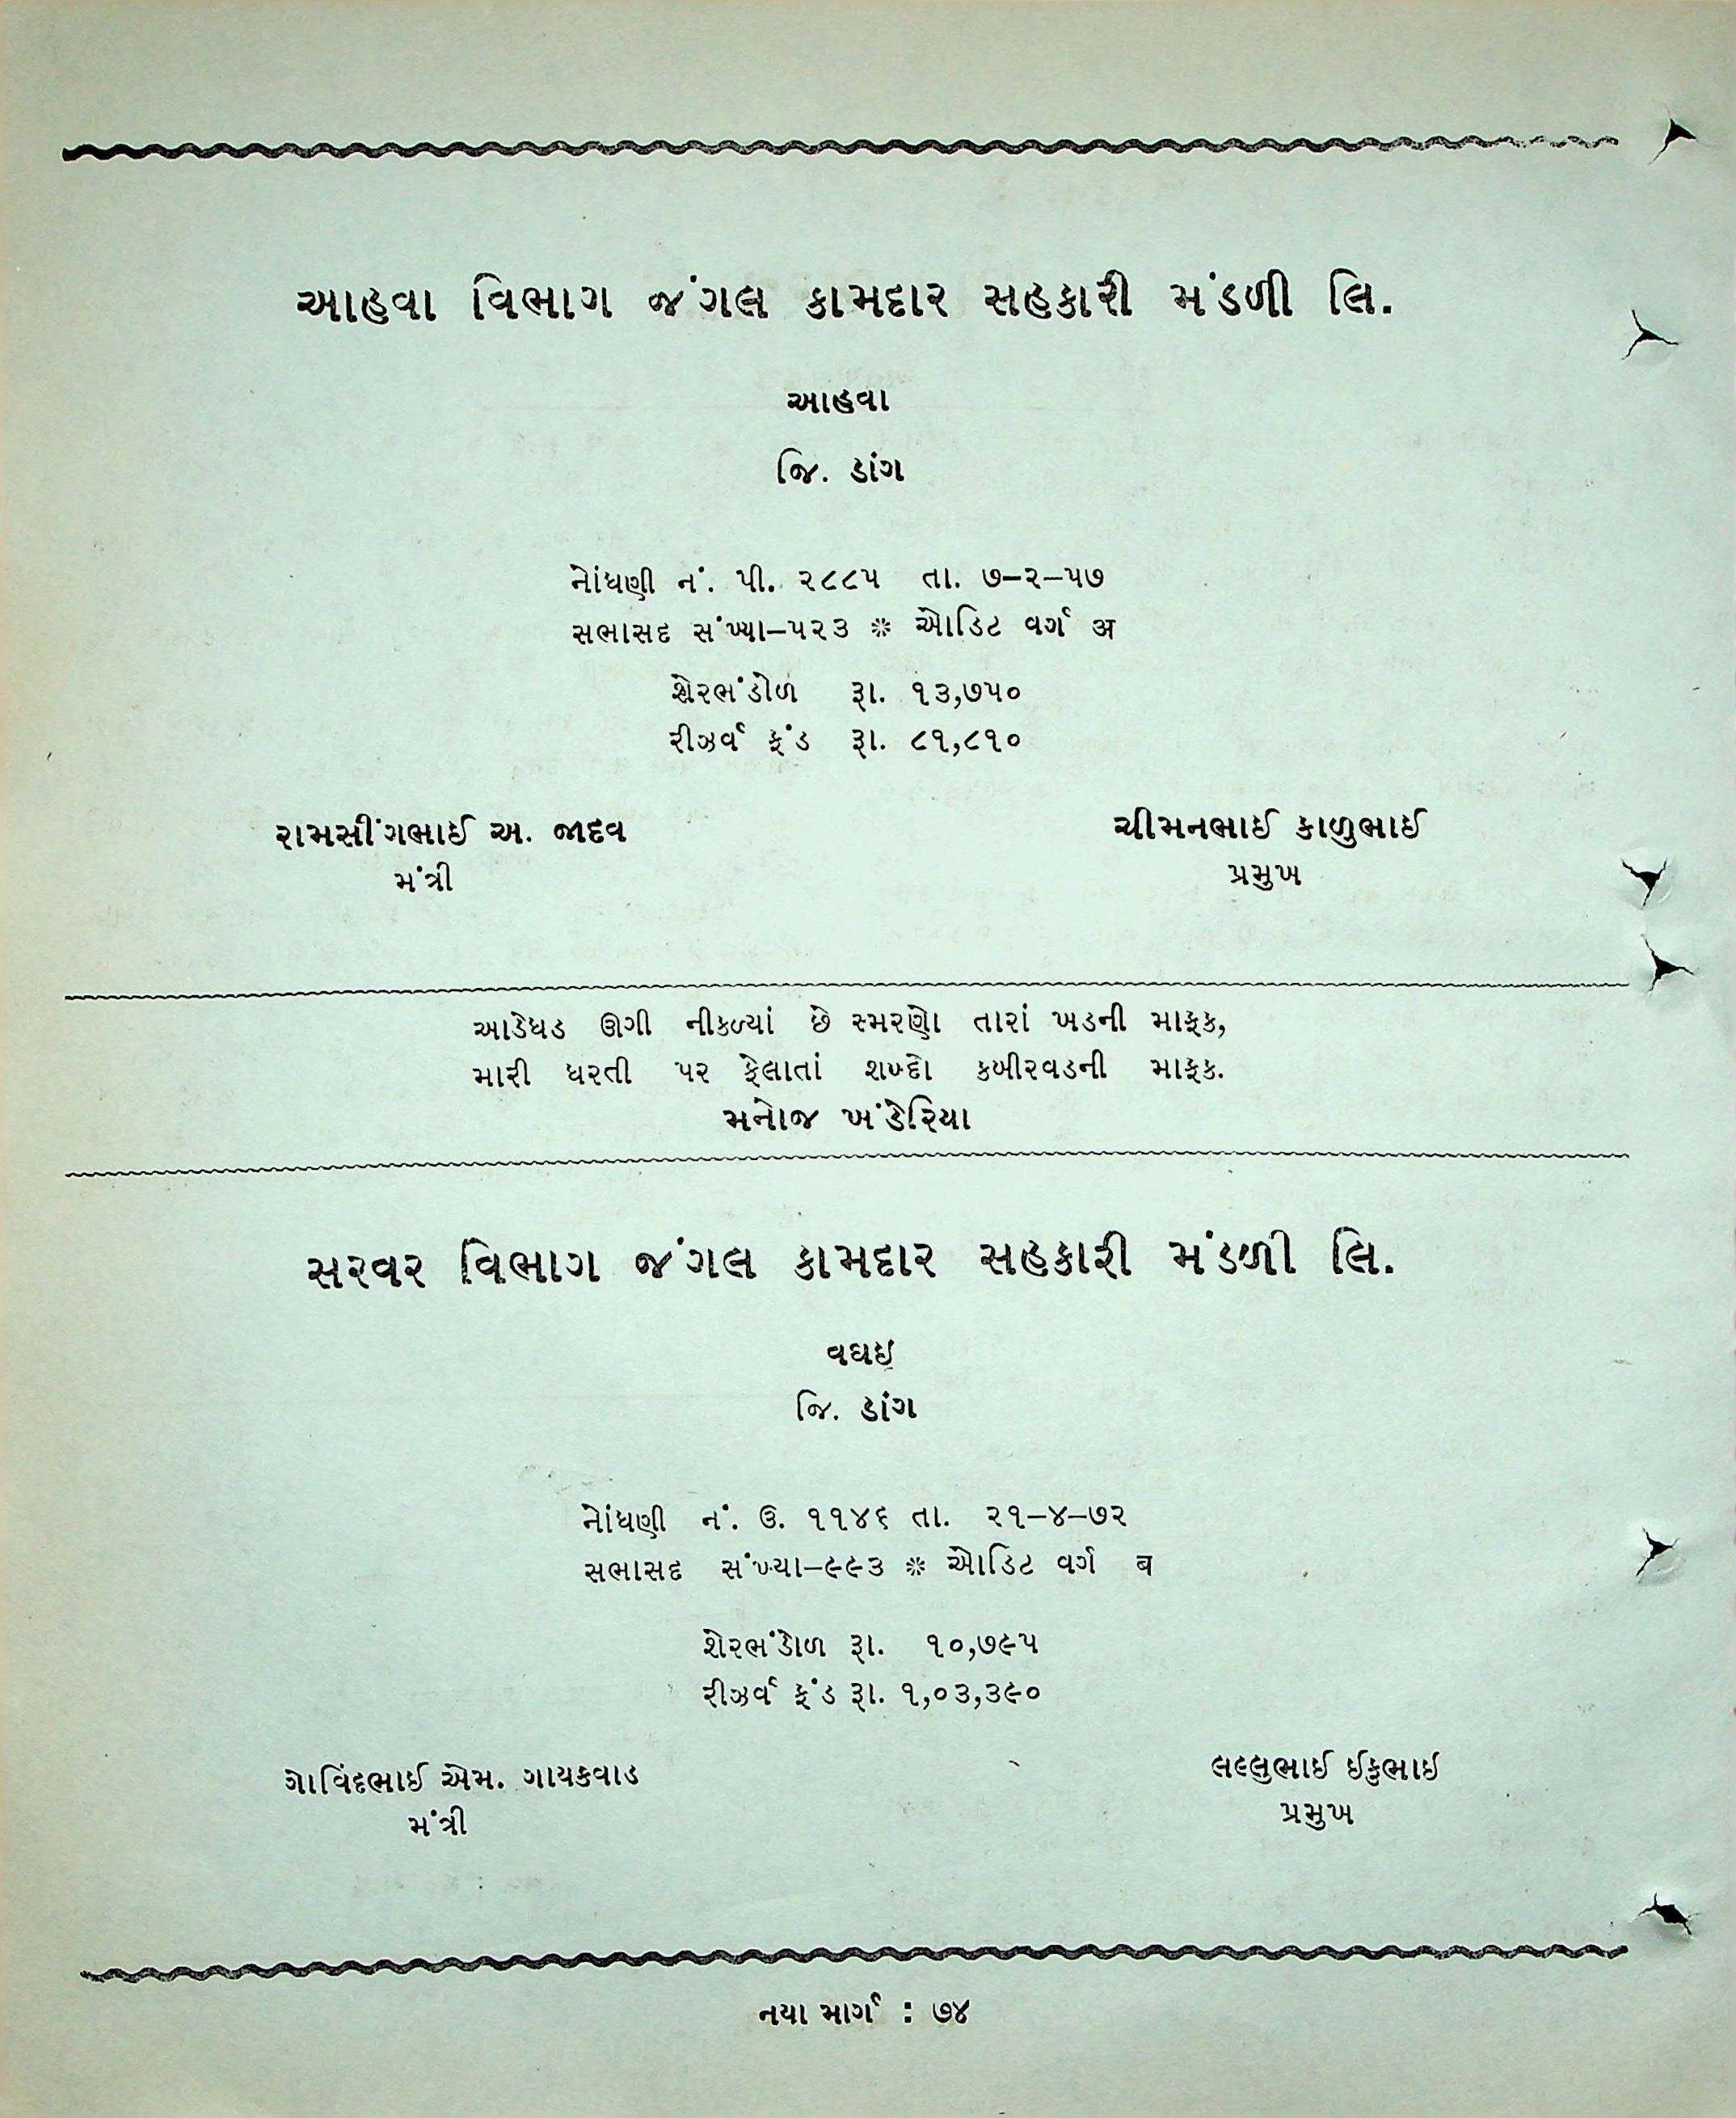 આહવા વિભાગ જંગલ કામદાર સહકારી મંડળી લિ.
આહવા
જિ. ડાંગ
નોંધણી નં. પી. ૨૮૮૫ તા. ૭–૨–૫૭
સભાસદ સંખ્યા–૫૨૩ * ઓડિટ વર્ગ अ
શેરભંડોળ રૂા. ૧૩,૭૫૦
રીઝર્વ ફંડ રૂા. ૮૧,૮૧૦
રામસીંગભાઈ અ. જાદવ ચીમનભાઈ કાળુભાઈ
મંત્રી પ્રમુખ
આડેધડ ઊગી નીકળ્યાં છે સ્મરણો તારાં ખડની માફક,
મારી ધરતી પર ફેલાતાં શબ્દો કબીરવડની માફક.
મનોજ ખંડેરિયા
સરવર વિભાગ જંગલ કામદાર સહકારી મંડળી લિ.
વઘઇ
જિ. ડાંગ
નોંધણી નં. ઉ. ૧૧૪૬ તા. ૨૧–૪–૭૨
સભાસદ સંખ્યા–૯૯૩ * ઓડિટ વર્ગ ब
શેરભંડોળ રૂા. ૧૦,૭૯૫
રીઝર્વ ફંડ રૂા. ૧,૦૩,૩૯૦
ગોવિંદભાઈ એમ. ગાયકવાડ લલ્લુભાઈ ઈકુભાઈ
મંત્રી પ્રમુખ
નયા માર્ગ : ૭૪